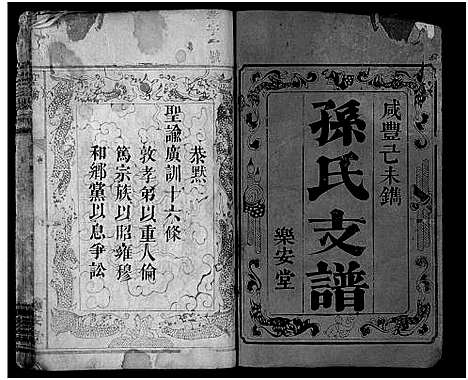 咸豐己未鐫
孫氏支譜
樂安堂
恭默
聖諭廣訓十六條
敦孝弟以重人倫
篤宗族以昭雍穆
和鄉黨以息爭訟